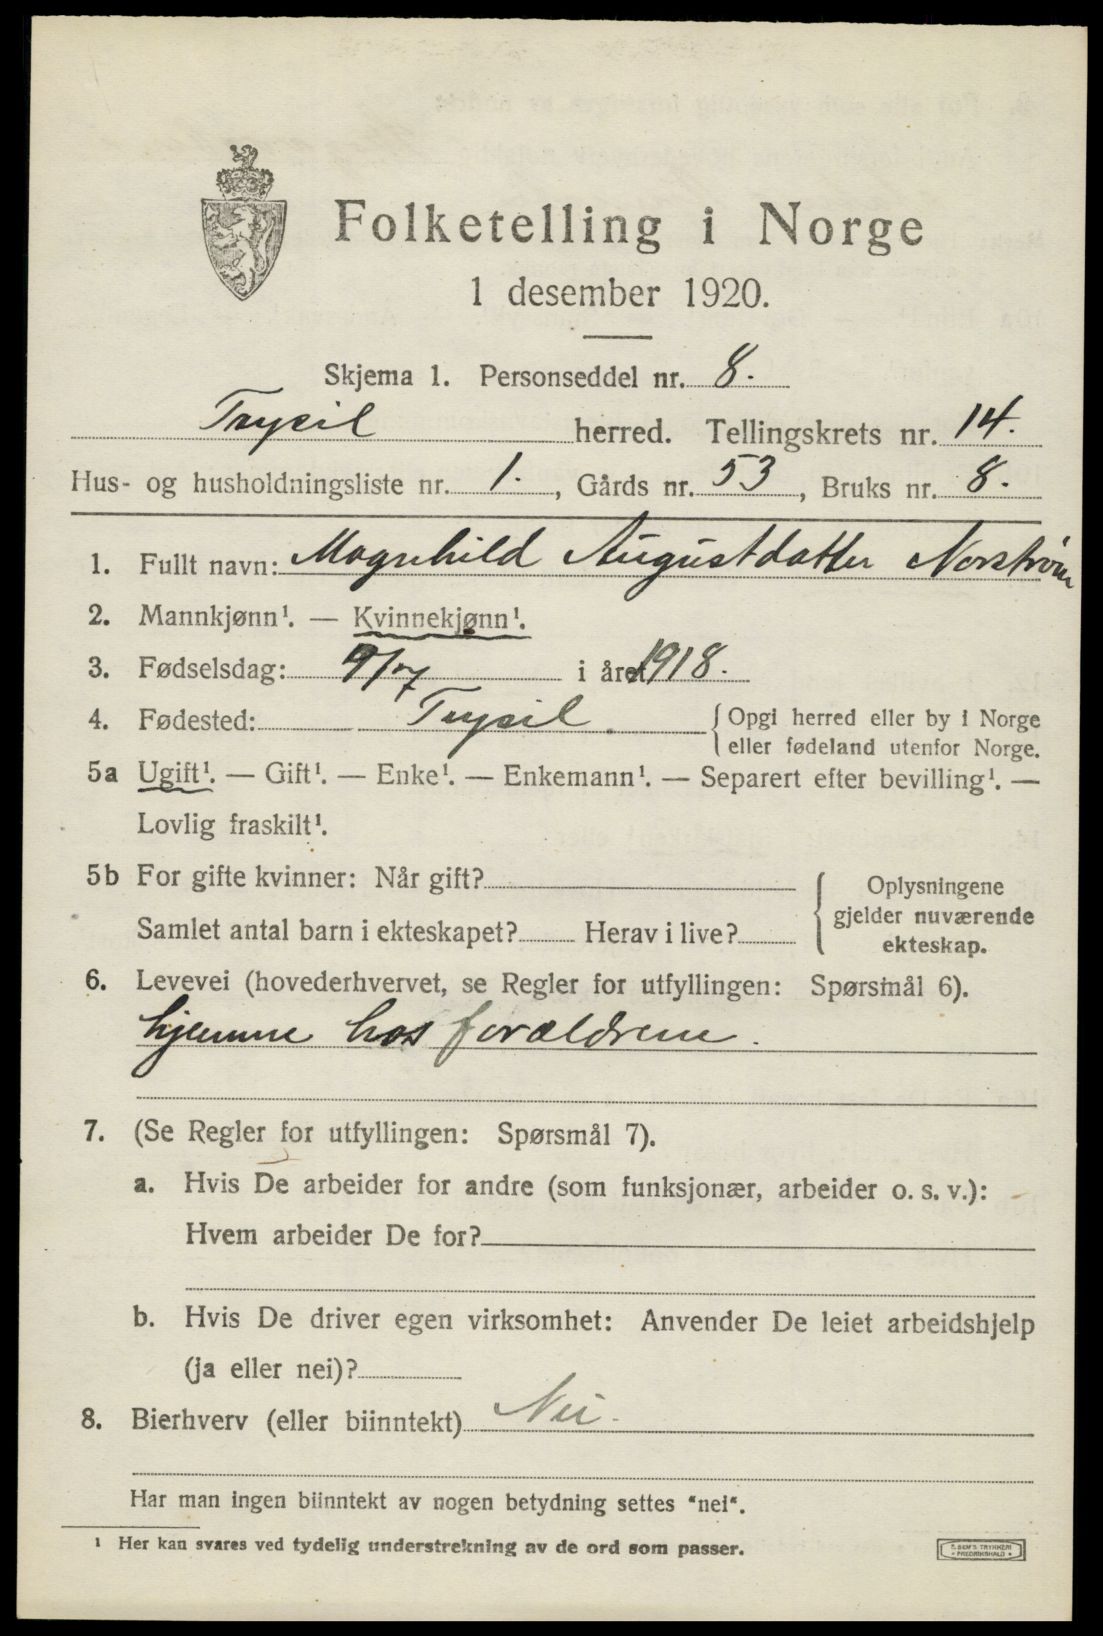 Folketelling i Norge
1 desember 1920.
Skjema 1. Personseddel nr. 8.
Trysil herred. Tellingskrets nr. 14.
Hus- og husholdningsliste nr. 1., Gårds nr. 53, Bruks nr. 8.
1. Fullt navn: Magnhild Augustdatter Norstrøm
2. Mannkjønn¹. — Kvinnekjønn¹.
3. Fødselsdag: 9/7 i året 1918.
4. Fødested: Trysil. { Opgi herred eller by i Norge
eller fødeland utenfor Norge.
5a Ugift¹. — Gift¹. — Enke¹. — Enkemann¹. — Separert efter bevilling¹. —
Lovlig fraskilt¹.
5b For gifte kvinner: Når gift? { Oplysningene
gjelder nuværende
Samlet antal barn i ekteskapet? Herav i live?
ekteskap.
6. Levevei (hovederhvervet, se Regler for utfyllingen: Spørsmål 6).
hjemme hos forældrene.
7. (Se Regler for utfyllingen: Spørsmål 7).
a. Hvis De arbeider for andre (som funksjonær, arbeider o. s. v.):
Hvem arbeider De for?
b. Hvis De driver egen virksomhet: Anvender De leiet arbeidshjelp
(ja eller nei)?
8. Bierhverv (eller biinntekt) Nei.
Har man ingen biinntekt av nogen betydning settes "nei".
¹ Her kan svares ved tydelig understrekning av de ord som passer.